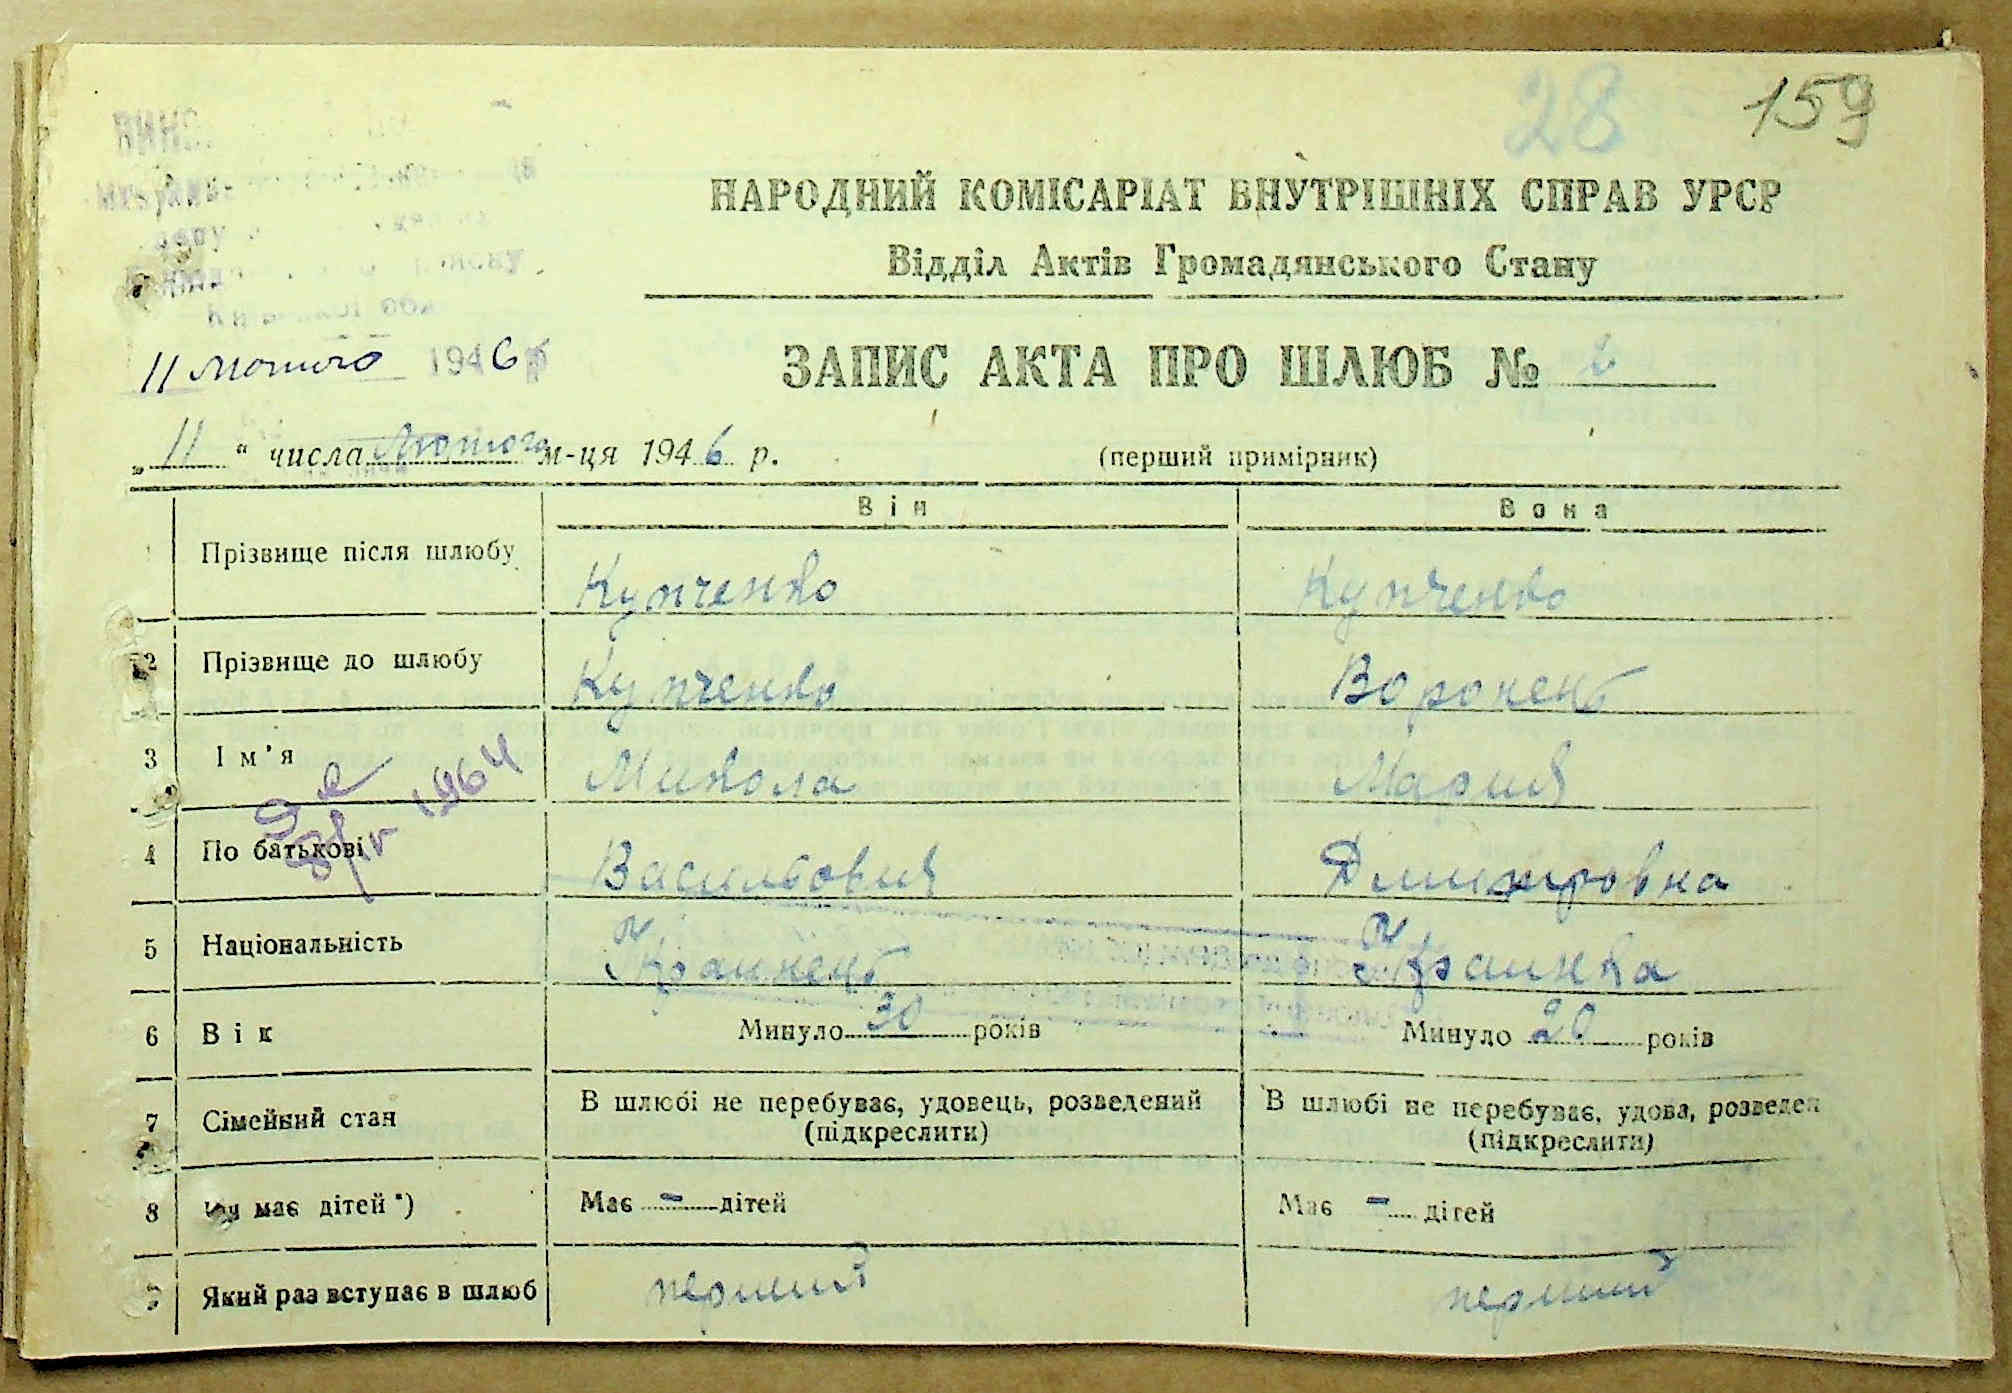 28 159
НАРОДНИЙ КОМІСАРІАТ ВНУТРІШНІХ СПРАВ УРСР
Відділ Актів Громадянського Стану
11 лютого 1946 р
ЗАПИС АКТА ПРО ШЛЮБ №
„ 11 “ числа Лютого м-ця 1946 р. (перший примірник)
Він Вона
Прізвище після шлюбу Купченко Купченко
2 Прізвище до шлюбу Купченко Воронень
3 Ім'я Микола Мария
1964
4 По батькові Васильович Дмитровна
5 Національність Українець Українка
6 Вік Минуло 30 років Минуло 20 років
7 Сімейний стан В шлюбі не перебуває, удовець, розведений В шлюбі не перебуває, удова, розведен
(підкреслити) (підкреслити)
8 Чи має дітей*) Має - дітей Має - дітей
Який раз вступає в шлюб перший перший